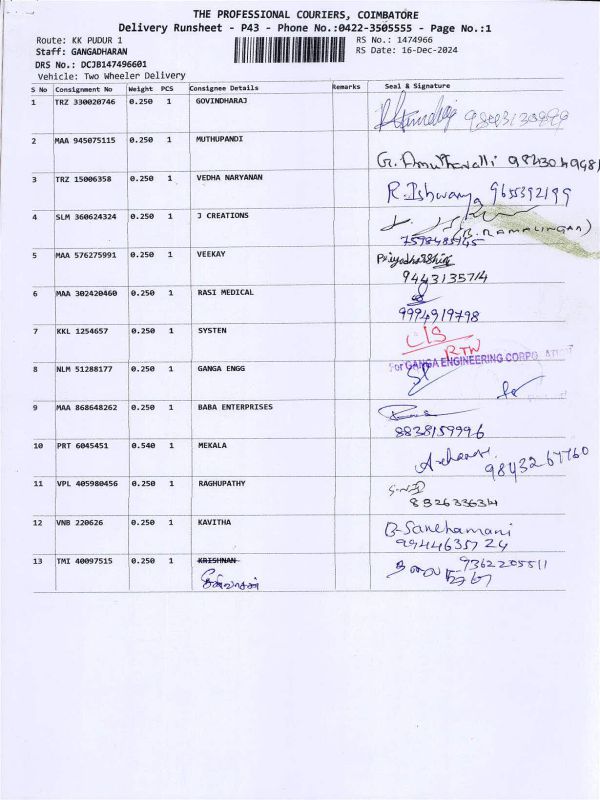 THE PROFESSIONAL COURIERS, COIMBATORE
Delivery Runsheet - P43 - Phone No.:0422-3505555 - Page No.:1
Route: KK PUDUR 1 RS No.: 1474966
Staff: GANGADHARAN RS Date: 16-Dec-2024
DRS No.: DCJB147496601
Vehicle: Two Wheeler Delivery
S No Consignment No Weight PCS Consignee Details Remarks Seal & Signature
1 TRZ 330020746 0.250 1 GOVINDHARAJ
2 MAA 945075115 0.250 1 MUTHUPANDI
G. Amuthavalli
3 TRZ 15006358 0.250 1 VEDHA NARYANAN
R. Ishwarya 9655392199
4 SLM 360624324 0.250 1 J CREATIONS
(B. RAMALINGAM)
5 MAA 576275991 0.250 1 VEEKAY
Priyadharshini
9443135714
6 MAA 302420460 0.250 1 RASI MEDICAL
9994919798
7 KKL 1254657 0.250 1 SYSTEN
C/S
RTN
For GANGA ENGINEERING CORPO ATION
8 NLM 51288177 0.250 1 GANGA ENGG
9 MAA 868648262 0.250 1 BABA ENTERPRISES
8838159996
10 PRT 6045451 0.540 1 MEKALA
9843267760
11 VPL 405980456 0.250 1 RAGHUPATHY
12 VNB 220626 0.250 1 KAVITHA
9944635724
13 TMI 40097515 0.250 1 KRISHNAN
9362205511